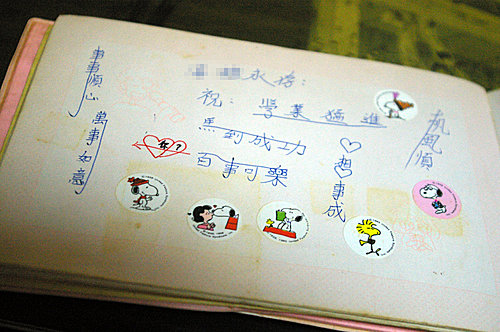 事事順心
萬事如意
祝：學業猛進
馬到成功
百事可樂
♡想事成
帆風順